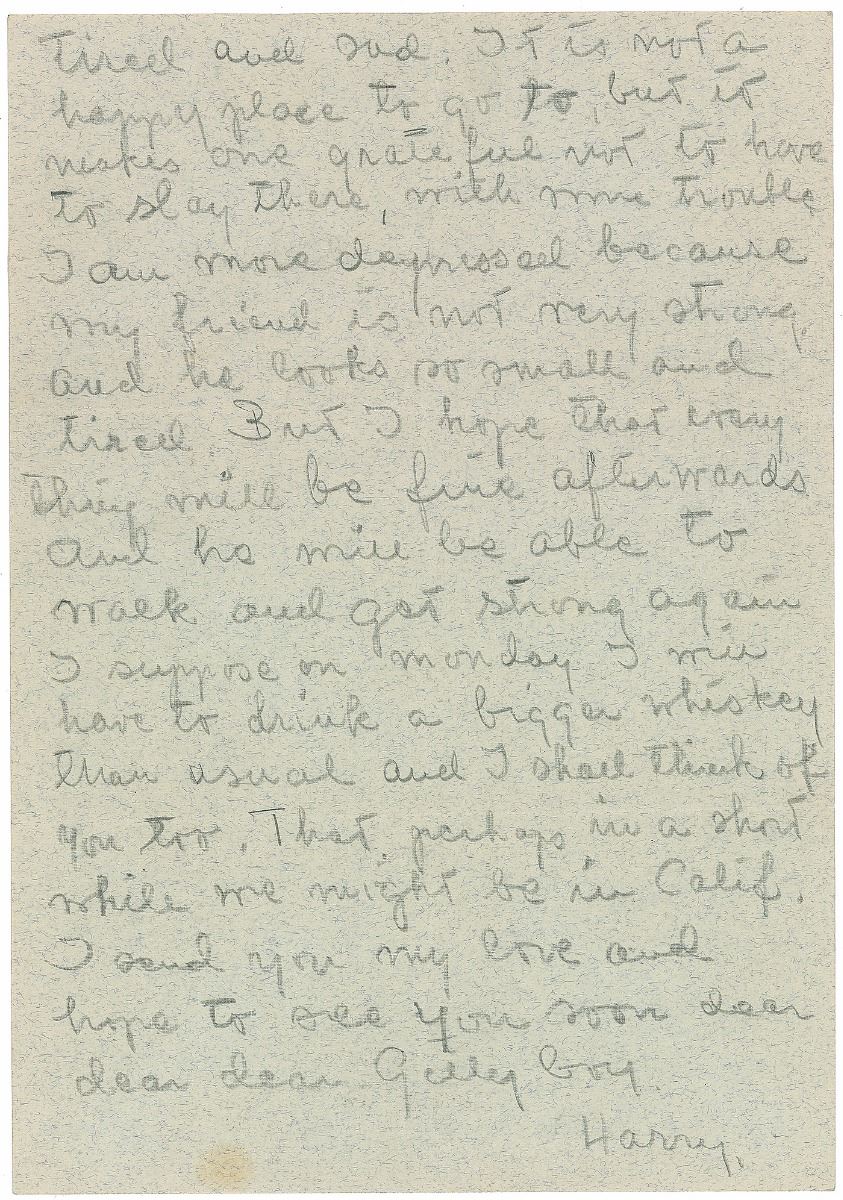 tired and sad. It is not a
happy place to go to, but it
makes one grateful not to have
to stay there, with some trouble
I am more depressed because
my friend is not very strong,
and he looks so small and
tired. But I hope that every
thing will be fine afterwards
And he will be able to
walk and get strong again
I suppose on monday I will
have to drink a bigger whiskey
than usual and I shall think of
you too. That, perhaps in a short
while we might be in Calif.
I send you my love and
hope to see you soon dear
dear dear Gilly boy.
Harry.